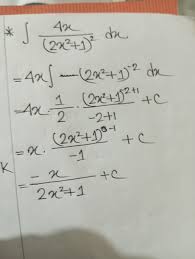 * ∫ 4x/(2x²+1)² dx
= 4x ∫ (2x²+1)⁻² dx
= 4x · 1/2 · (2x²+1)⁻²⁺¹/-2+1 + c
= x · (2x²+1)⁻¹/-1 + c
K = -x/2x²+1 + c